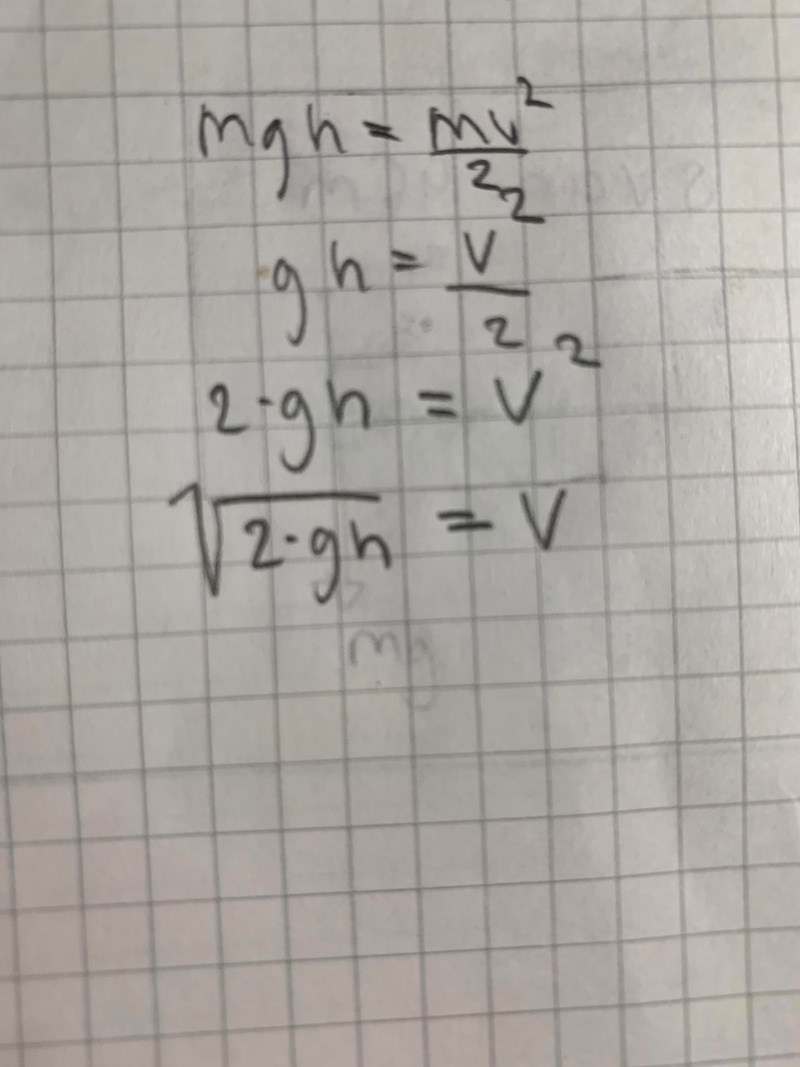 mgh = mv²/2
gh = v²/2
2·gh = v²
√(2·gh) = v
mg